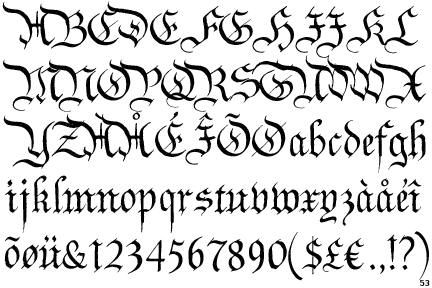 ABCDEFGHIJKL
MNOPQRSTUVWX
YZÀÅÉÎÕØabcdefgh
ijklmnopqrstuvwxyzàåéî
õøü&1234567890($£€.,!?)
53